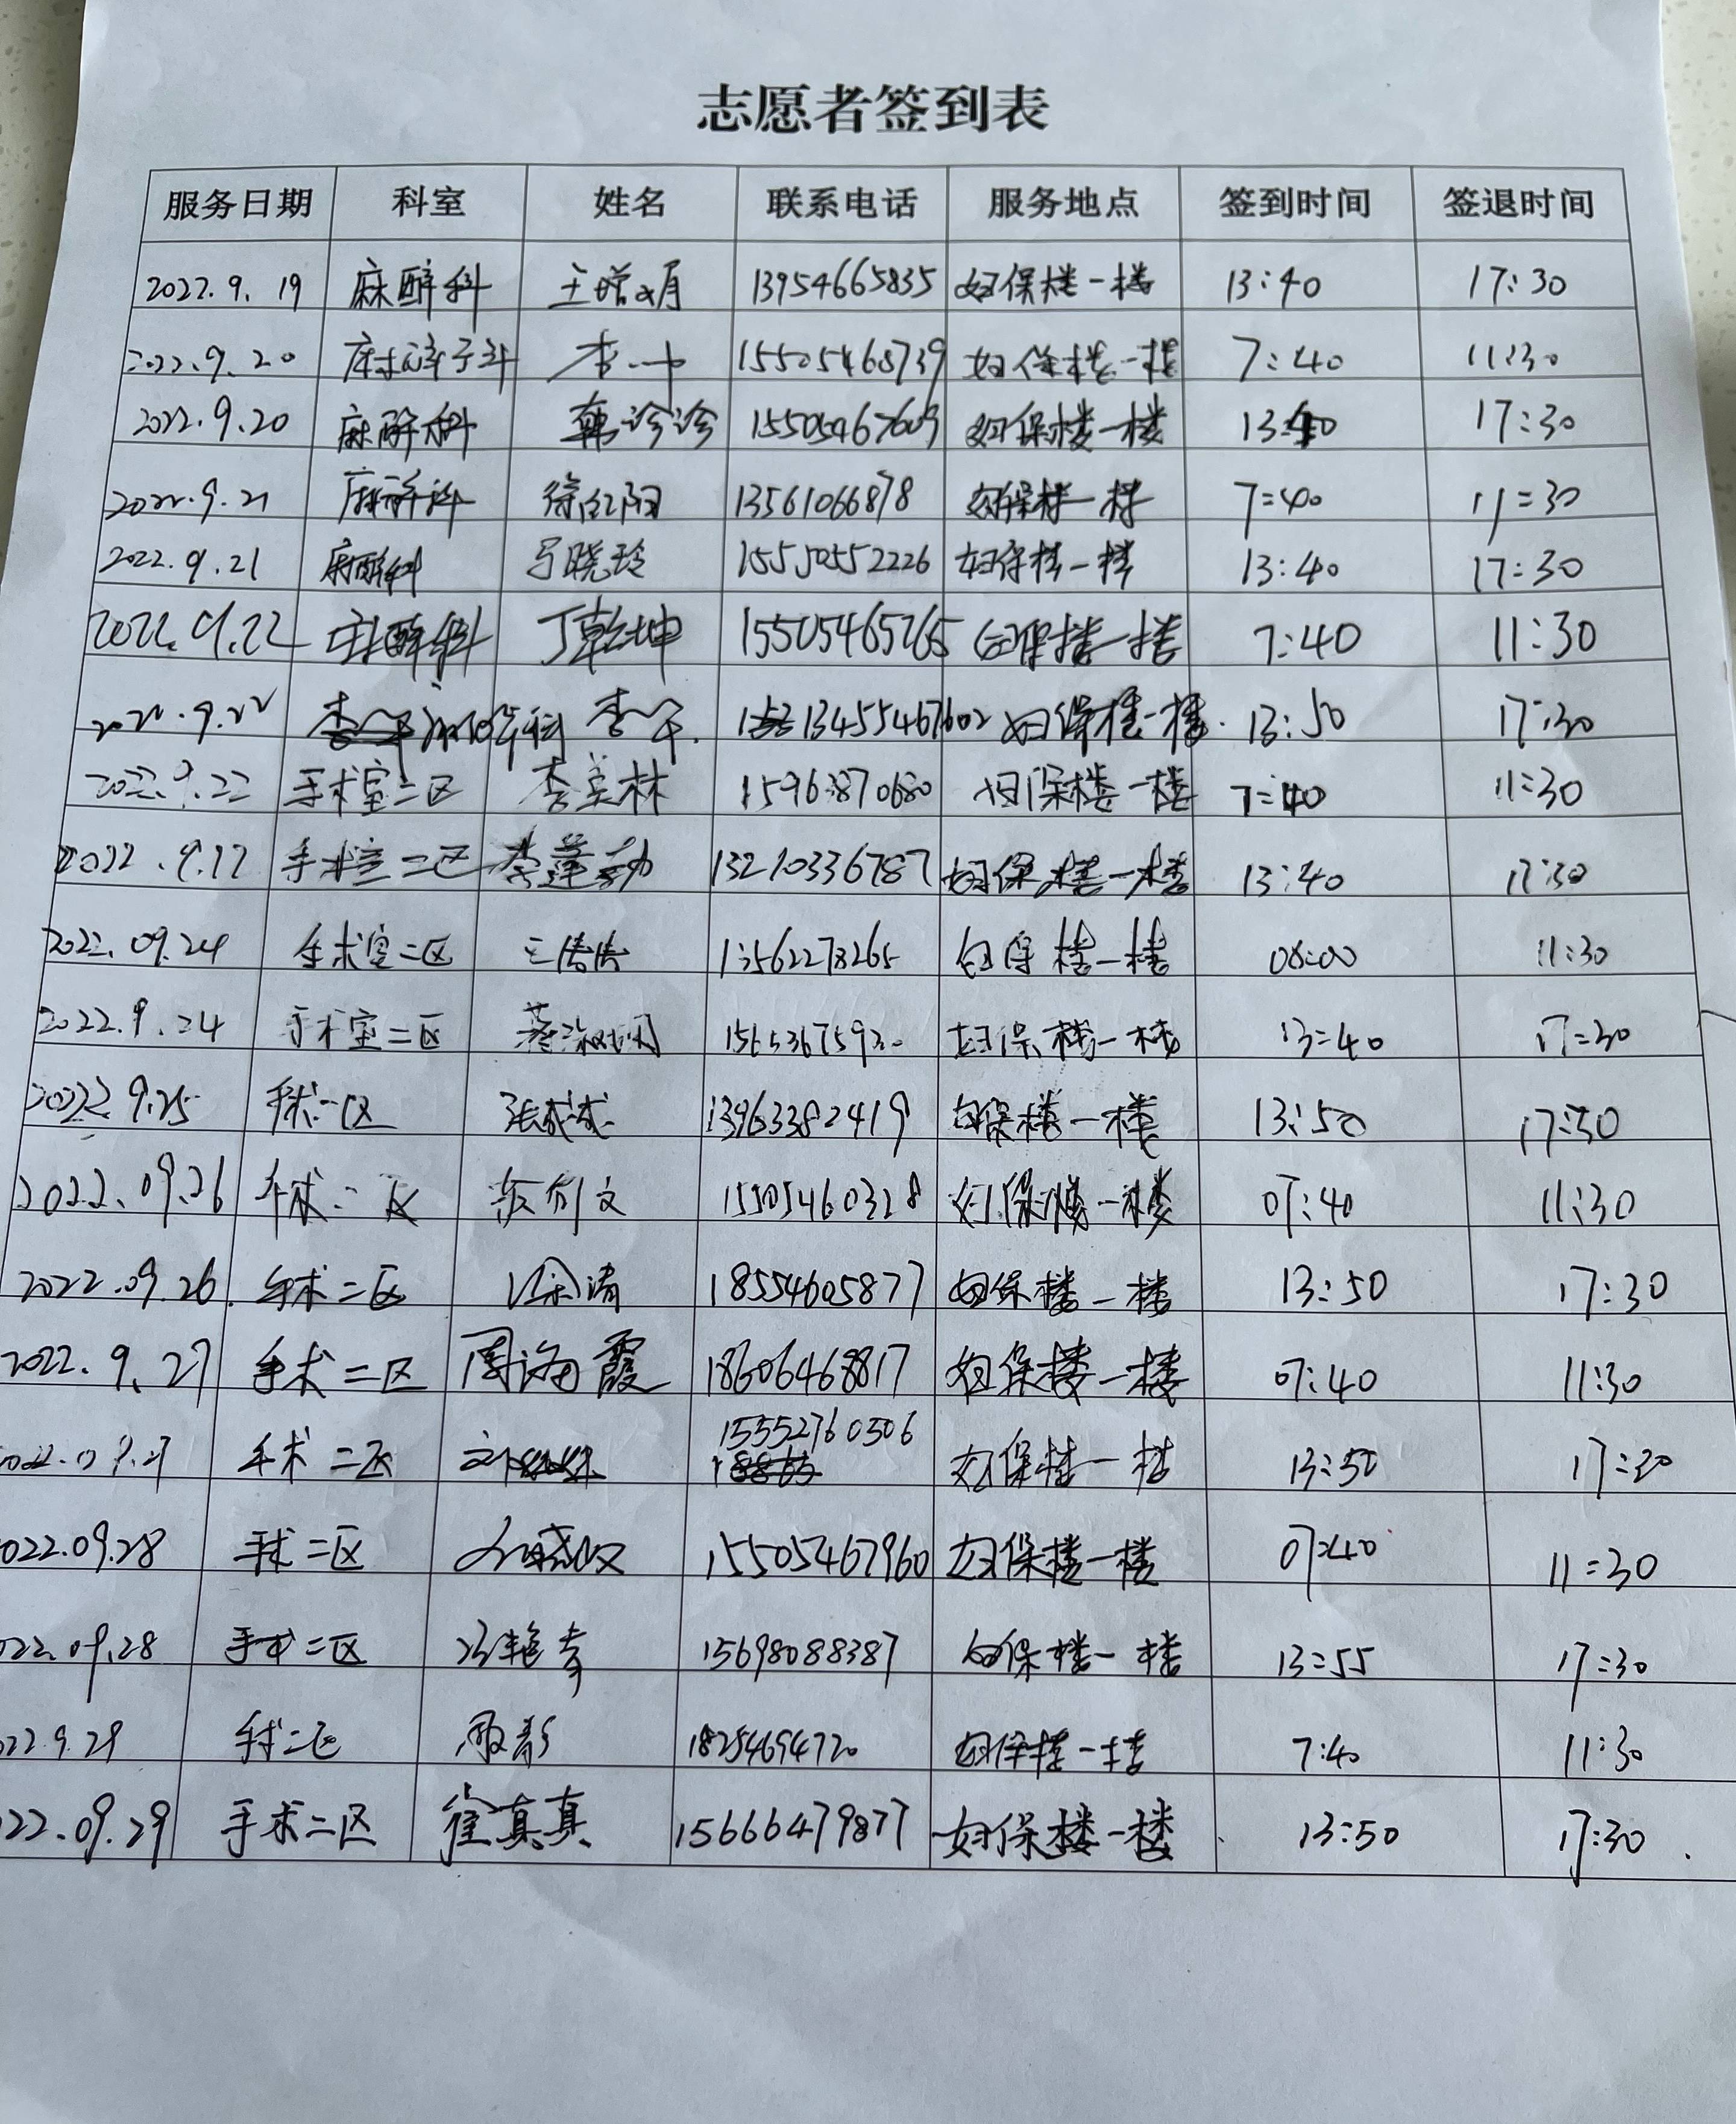 志愿者签到表
服务日期 科室 姓名 联系电话 服务地点 签到时间 签退时间
2022.9.19 麻醉科 王增月 13954665835 妇保楼一楼 13:40 17:30
2022.9.20 麻醉科 李 15505468739 妇保楼一楼 7:40 11:30
2022.9.20 麻醉科 韩诊诊 15505467609 妇保楼一楼 13:40 17:30
2022.9.21 麻醉科 徐红阳 13561066878 妇保楼一楼 7:40 11:30
2022.9.21 麻醉科 晓玲 15550552226 妇保楼一楼 13:40 17:30
2022.9.22 麻醉科 丁乾坤 15505465265 妇保楼一楼 7:40 11:30
2022.9.22 麻醉科 李 13455467602 妇保楼一楼 13:50 17:30
2022.9.22 手术室二区 李美林 15963870680 妇保楼一楼 7:40 11:30
2022.9.22 手术室二区 李莲勤 13210336787 妇保楼一楼 13:40 17:30
2022.09.24 手术室二区 王倩倩 13562278265 妇保楼一楼 08:00 11:30
2022.9.24 手术室二区 妇保楼一楼 13:40 17:30
2022.9.25 手术一区 张成成 13963382419 妇保楼一楼 13:50 17:30
2022.09.26 手术二区 文 15505460328 妇保楼一楼 07:40 11:30
2022.09.26 手术二区 徐涛 18554605877 妇保楼一楼 13:50 17:30
2022.9.27 手术二区 周海霞 18606468817 妇保楼一楼 07:40 11:30
2022.09.27 手术二区 15552760506 妇保楼一楼 13:50 17:30
022.09.28 手术二区 15505467960 妇保楼一楼 07:40 11:30
022.09.28 手术二区 冯艳 15698088387 妇保楼一楼 13:55 17:30
22.9.29 手术二区 殷彩 18254694720 妇保楼一楼 7:40 11:30
22.09.29 手术二区 徐真真 15666479877 妇保楼一楼 13:50 17:30